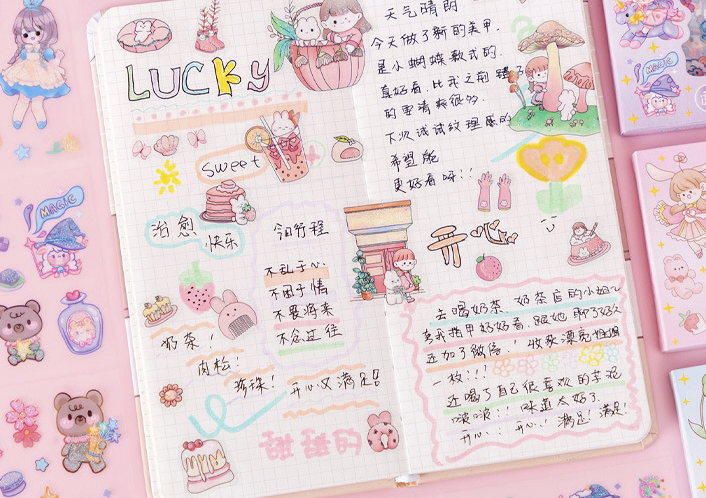 LUCKY
sweet
治愈
快乐
今日行程
不乱于心
不困于情
不畏将来
不念过往
奶茶！
肉松！
珍珠！
开心又满足！
甜甜的
天气晴朗
今天做了新的美甲.
是小蝴蝶款式的.
真好看.比我之前
的要清新很多.
下次试试纹理感的
希望能
更好看呀!!
开心
去喝奶茶.奶茶店的小姐
夸我指甲好好看.跟她聊了好久
还加了微信!收获漂亮
一枚!!!
还喝了自己很喜欢的芋泥
啵啵!!味道太好了.
开心!开心!满足!满足!
MAGIC
MAGIC